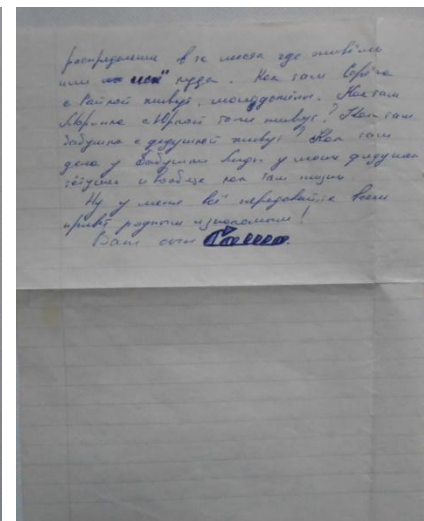 распределили в те места где живёте
или нуден. Как там Серёга
с Райкой живут, молодожёны. Как там
Маринка с Юркой тоже живут? Как там
бабушка с дедушкой живут? Как там
дела у бабушки Лиды у моих дядушки
тётушки и вообще как там жизнь.
Ну у меня всё передавайте всем
привет родным и знакомым!
Ваш сын